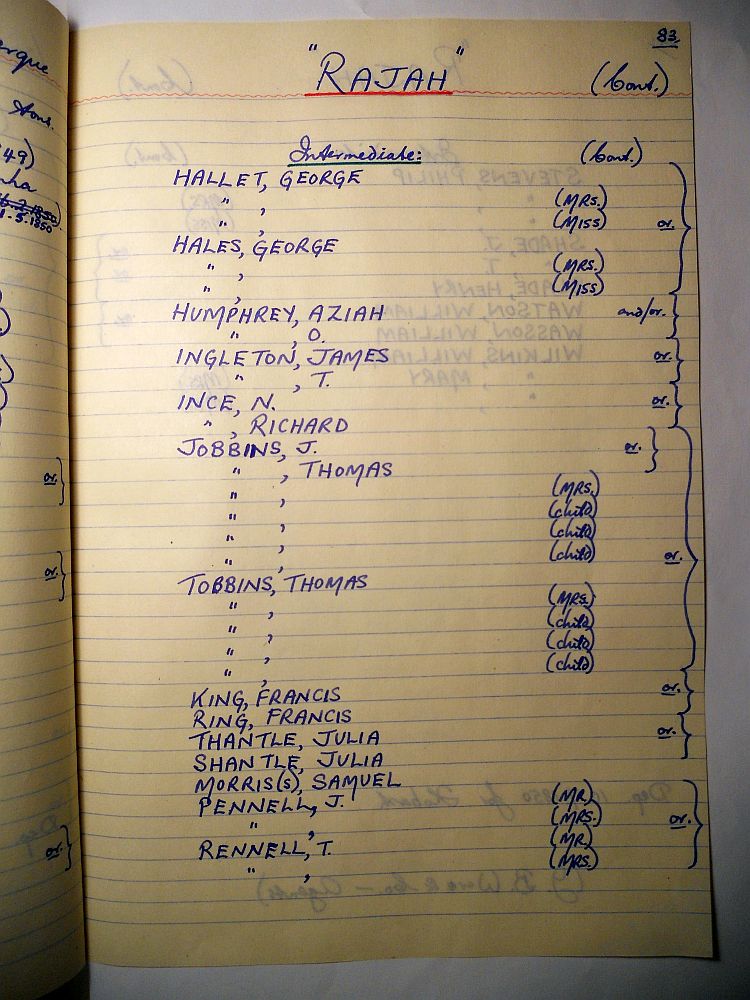 83.
"RAJAH" (Cont.)
Intermediate: (Cont.)
HALLET, GEORGE
" , (MRS.)
" , (MISS) or.
HALES, GEORGE
" , (MRS.)
" , (MISS)
HUMPHREY, AZIAH and/or.
" , O.
INGLETON, JAMES or.
" , T.
INCE, N. or.
" , RICHARD
JOBBINS, J. or.
" , THOMAS
" , (MRS.)
" , (child)
" , (child)
" , (child) or.
TOBBINS, THOMAS
" , (MRS.)
" , (child)
" , (child)
" , (child)
KING, FRANCIS or.
RING, FRANCIS
THANTLE, JULIA or.
SHANTLE, JULIA
MORRIS(S), SAMUEL
PENNELL, J. (MR.)
" , (MRS.) or.
RENNELL, T. (MR.)
" , (MRS.)
erque
Sons.
49)
1.5.1850
or.
or.
or.